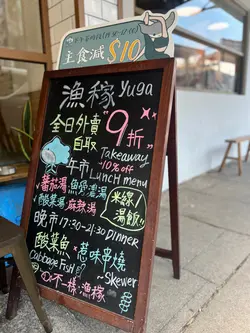 主食減$10
漁稼 Yuga
全日外賣
自取
"9折"
Takeaway
-10% off
午市 Lunch menu
番茄湯/魚骨濃湯
酸菜湯/麻辣湯
米線/
湯飯
晚市 17:30-21:30 DINNER
酸菜魚 × 惹味串燒
Cabbage Fish ~Skewer
不一樣漁稼